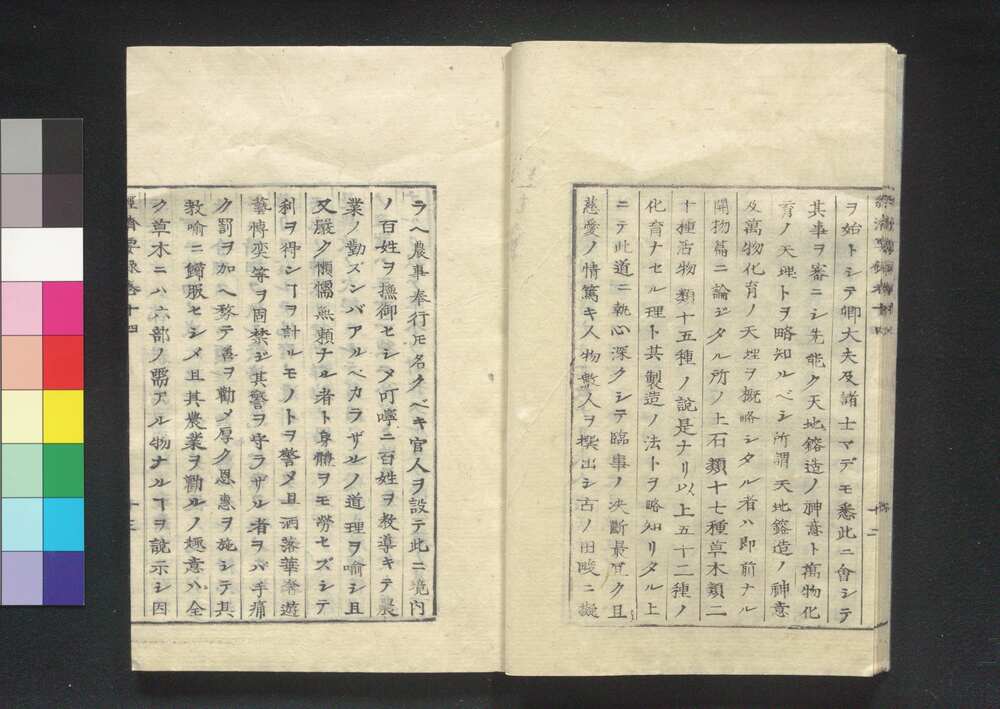 ヲ始トシテ卿大夫及諸士マデモ悉此ニ會シテ
其事ヲ審ニシ先能ク天地鎔造ノ神意ト萬物化
育ノ天理トヲ略知ルベシ所謂天地鎔造ノ神意
及萬物化育ノ天理ヲ概略シタル者ハ即前ナル
開物篇ニ論ジタル所ノ上石類十七種草木類二
十種活物類十五種ノ説是ナリ以上五十二種ノ
化育ナセル理ト其製造ノ法トヲ略知リタル上
ニテ此道ニ執心深クシテ臨事ノ决斷最モク且
慈愛ノ情篤キ人物數人ヲ撰出シ古ノ田畯ニ擬
ラヘ農事奉行𪜈名クベキ官人ヲ設テ此ニ境内
ノ百姓ヲ撫御セシメ叮嚀ニ百姓ヲ教導キテ農
業ノ勤ズンバアルベカラザルノ道理ヲ喻シ且
又嚴ク懶惰無頼ナル者ト身體ヲモ勞セズシテ
利ヲ得ンヿヲ計ルモノトヲ警メ且酒落華奢遊
藝博奕等ヲ固禁ジ其警ヲ守ラザル者ヲバ手痛
ク罰ヲ加ヘ務テ善ヲ勸メ厚ク恩惠ヲ施シテ其
教喻ニ歸服セシメ且其農業ヲ勸ルノ趣意ハ全
ク草木ニハ六部ノ需アル物ナルヿヲ說示シ因
經濟要録卷十四
十三